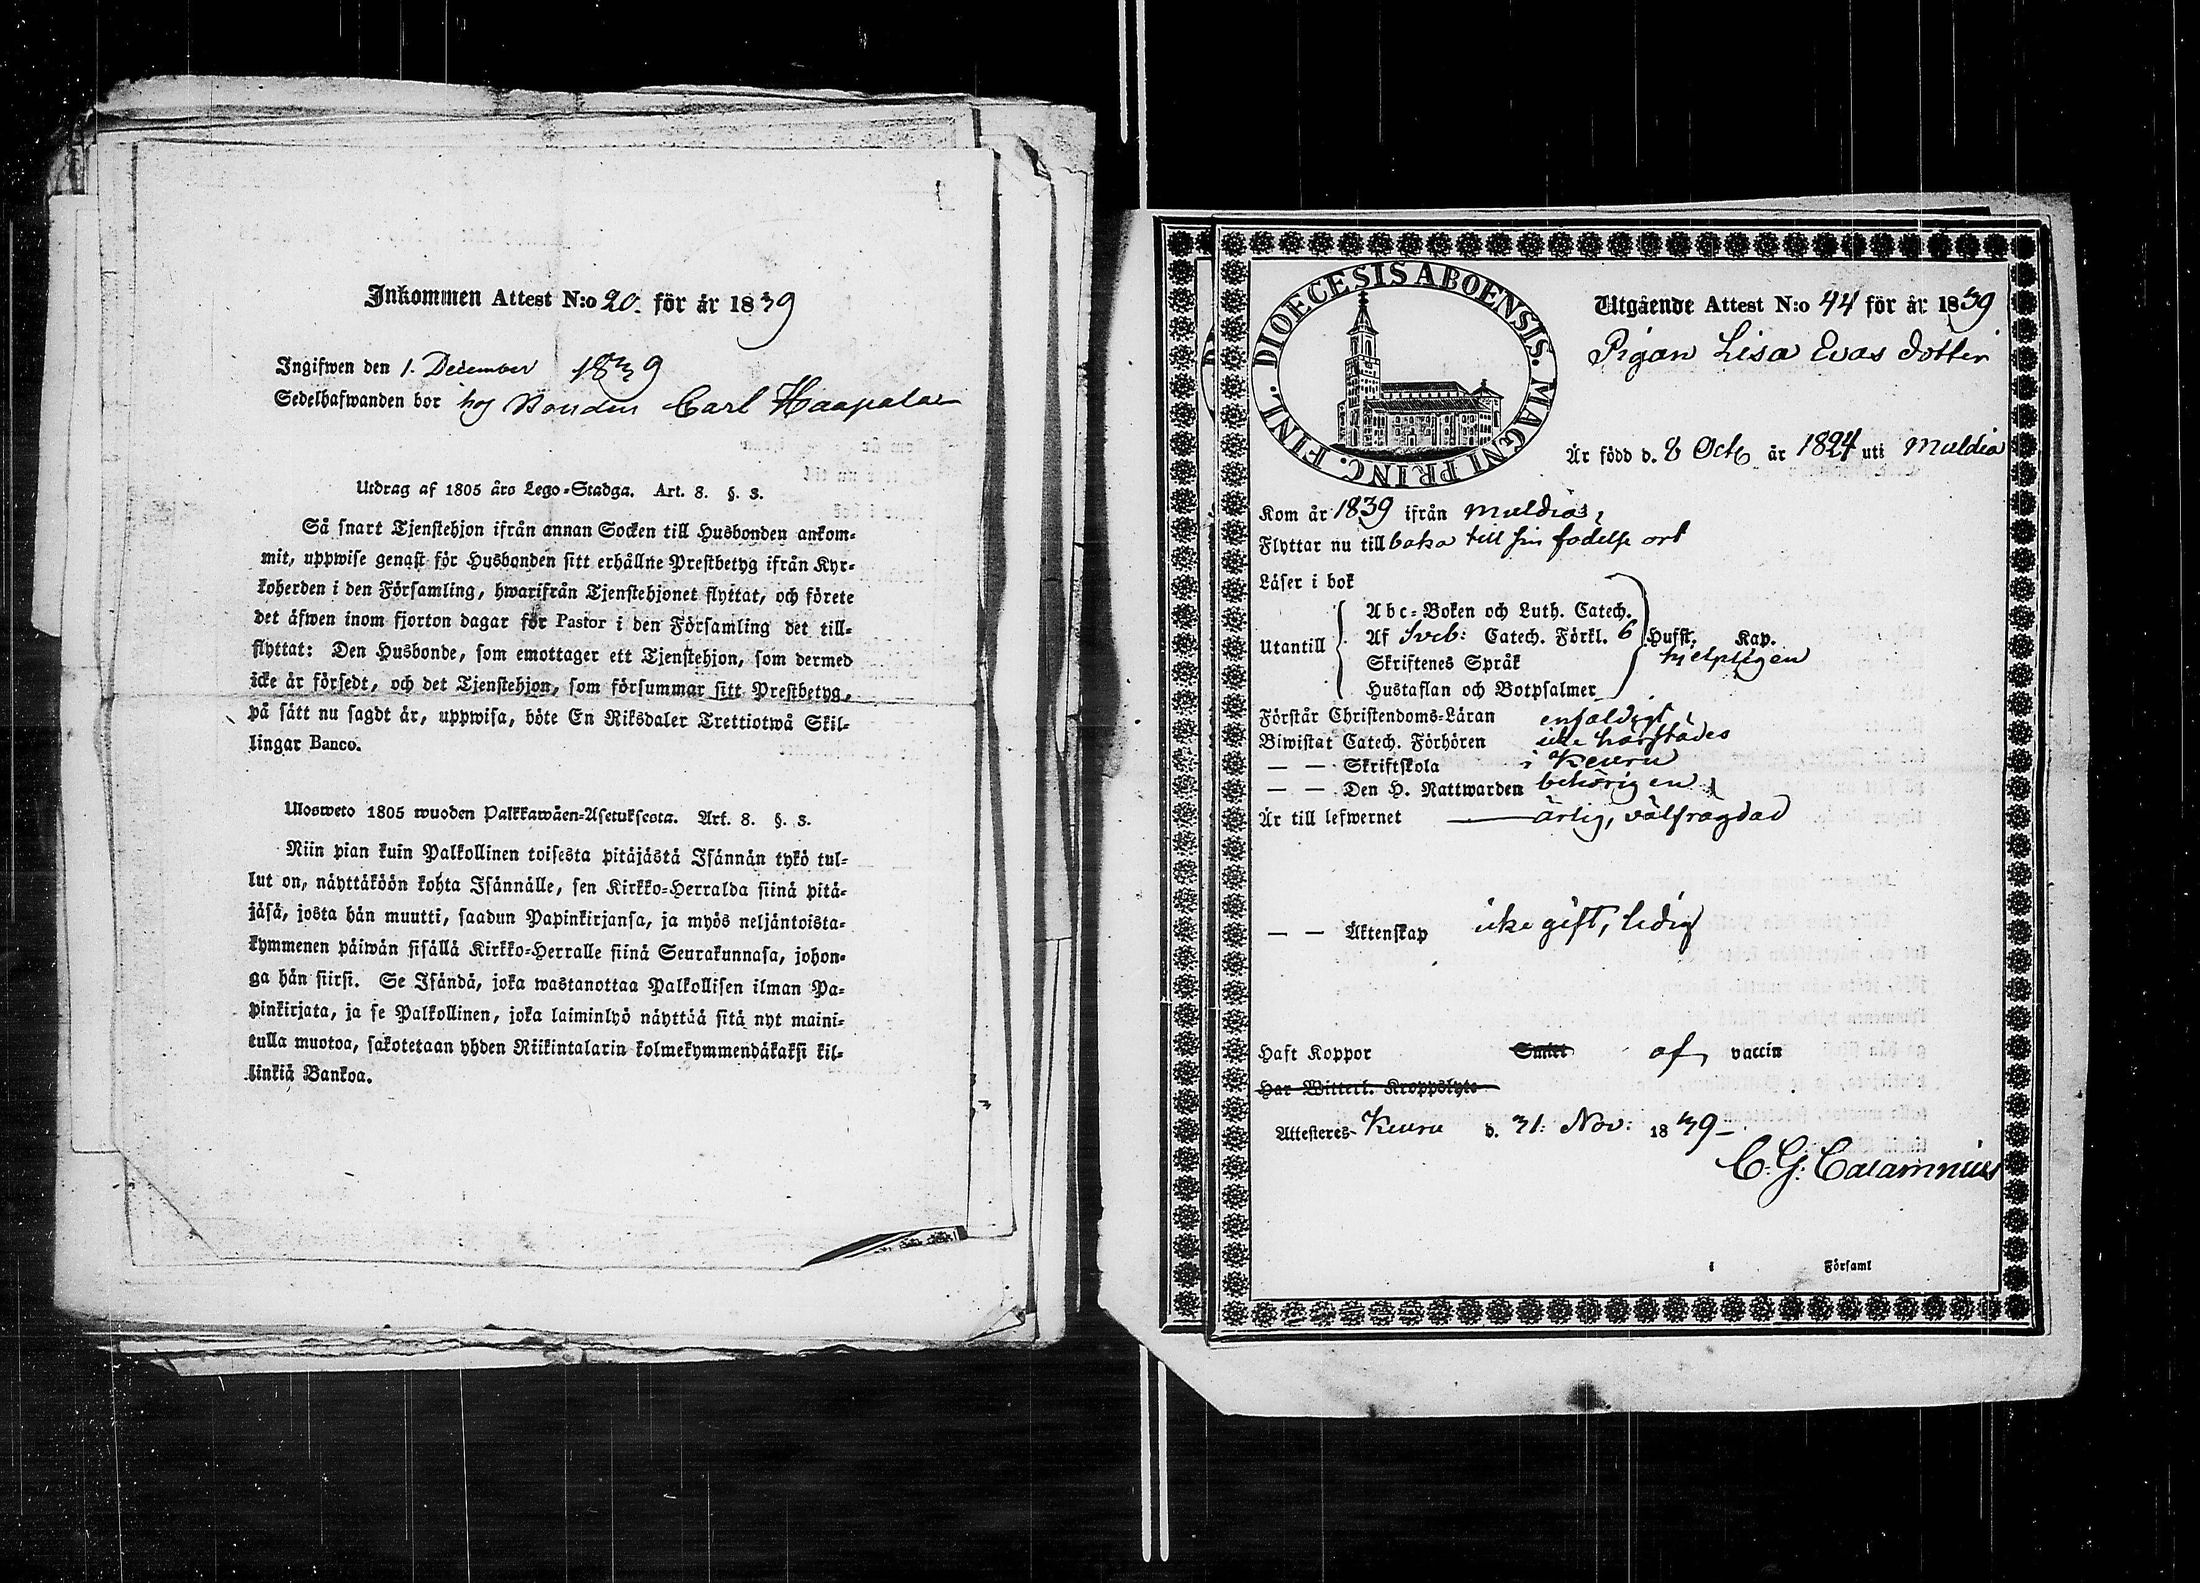 Inkommen Attest N:o 20. för år 1839
Ingifwen den 1. December 1839
Sedelhafwanden bor hos Bonden Carl Haapala
Utdrag af 1805 års Lego-Stadga. Art. 8. §. 3.
Så snart Tjenstehjon ifrån annan Socken till Husbonden ankom-
mit, uppwise genast för Husbonden sitt erhållne Prestbetyg ifrån Kyr-
koherden i den Församling, hwarifrån Tjenstehjonet flyttat, och förete
det äfwen inom fjorton dagar för Pastor i den Församling det till-
flyttat: Den Husbonde, som emottager ett Tjenstehjon, som dermed
icke är försedt, och det Tjenstehjon, som försummar sitt Prestbetyg,
på sätt nu sagdt är, uppwisa, böte En Riksdaler Trettiotwå Skil-
lingar Banco.
Ulosweto 1805 wuoden Palkkawäen-Asetuksesta. Art. 8. §. 3.
Niin pian kuin Palkollinen toisesta pitäjästä Isännän tykö tul-
lut on, näyttäköön kohta Isännälle, sen Kirkko-Herralda siinä pitä-
jäsä, josta hän muutti, saadun Papinkirjansa, ja myös neljäntoista-
kymmenen päiwän sisällä Kirkko-Herralle siinä Seurakunnasa, johon-
ga hän siirsi. Se Isändä, joka wastanottaa Palkollisen ilman Pa-
pinkirjata, ja se Palkollinen, joka laiminlyö näyttää sitä nyt maini-
tulla muotoa, sakotetaan yhden Riikintalarin kolmekymmendäkaksi kil-
linkiä Bankoa.
DIOECESIS ABOENSIS. MAGNI PRINC. FINL.
Utgående Attest N:o 44 för år 1839
Pigan Lisa Evas dotter
Är född d. 8 Octb år 1824 uti Muldia
Kom år 1839 ifrån Muldia
Flyttar nu tillbaka till sin födelse ort
Läser i bok
Utantill
Abc-Boken och Luth. Catech.
Af Sveb: Catech. Förkl. 6 Hufst. Kap.
Skriftenes Språk hjelpligen
Hustaflan och Botpsalmer
Förstår Christendoms-Läran enfaldigt
Biwistat Catech. Förhören icke härstädes
— — Skriftskola i Keuru
— — Den H. Nattwarden behörigen
Är till lefwernet ärlig, välfrägdad
— — Äktenskap icke gift, ledig
Haft Koppor Smitt af vaccin
Har Witterl. Kroppslyte
Attesteres Keuru d. 31: Nov: 1839
C. G.
i Församl